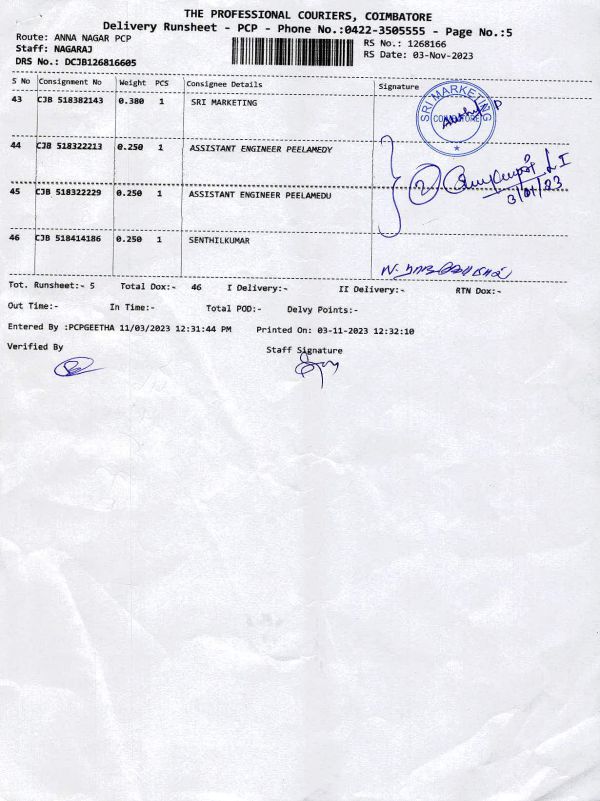 THE PROFESSIONAL COURIERS, COIMBATORE
Delivery Runsheet - PCP - Phone No.:0422-3505555 - Page No.:5
Route: ANNA NAGAR PCP RS No.: 1268166
Staff: NAGARAJ RS Date: 03-Nov-2023
DRS No.: DCJB126816605
S No Consignment No Weight PCS Consignee Details Signature
43 CJB 518382143 0.380 1 SRI MARKETING
SRI MARKETING
44 CJB 518322213 0.250 1 ASSISTANT ENGINEER PEELAMEDY
45 CJB 518322229 0.250 1 ASSISTANT ENGINEER PEELAMEDU
46 CJB 518414186 0.250 1 SENTHILKUMAR
Tot. Runsheet:- 5 Total Dox:- 46 I Delivery:- II Delivery:- RTN Dox:-
Out Time:- In Time:- Total POD:- Delvy Points:-
Entered By :PCPGEETHA 11/03/2023 12:31:44 PM Printed On: 03-11-2023 12:32:10
Verified By Staff Signature